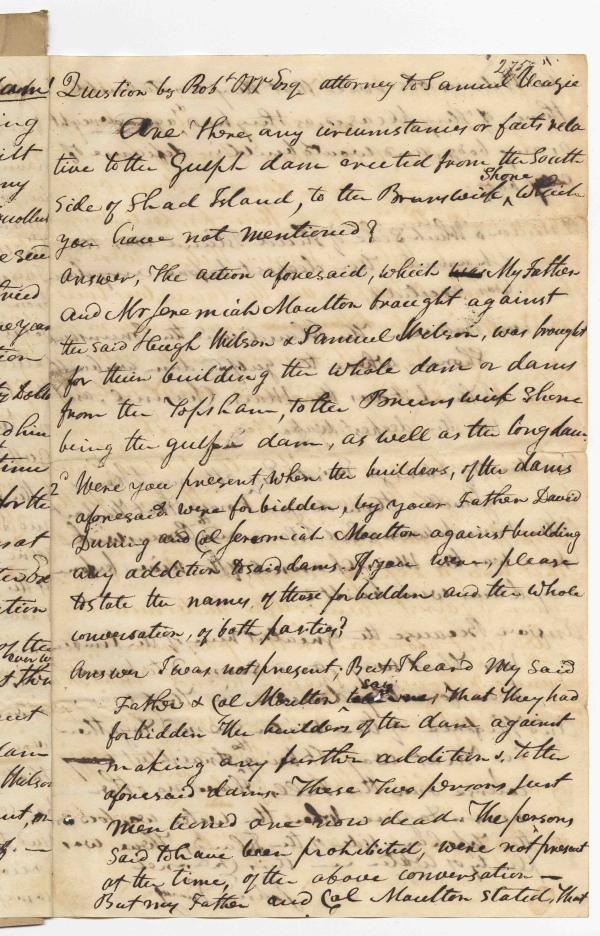 275
Question by Robt Orr Esq attorney to Samuel Veazie
Are there any circumstances or facts rela
tive to the Gulph dam erected from the South
Side of Shad Island, to the Brunswick Shore, which
you have not mentioned?
Answer, The action aforesaid, which was My Father
and Mr Jeremiah Moulton braught against
the said Hugh Wilson & Samuel Wilson, was brought
for their building the whole dam or dams
from the Topsham, to the Brunswick Shore
being the gulph dam, as well as the long dam
2d Were you present, when the builders, of the dams
aforesaid were forbidden, by your Father David
Duning and Col Jeremiah Moulton against building
any addition to said dams. If you were, please
to state the names of those forbidden and the whole
conversation, of both parties?
Answer I was not present; But I heard My said
Father & Col Moulton say that they had
forbidden the builders of the dam against
making any further additions, to the
aforesaid dams. These two persons just
mentioned are now dead. The persons
said to have been prohibited, were not present
at the time, of the above conversation —
But my Father and Col Moulton stated, that